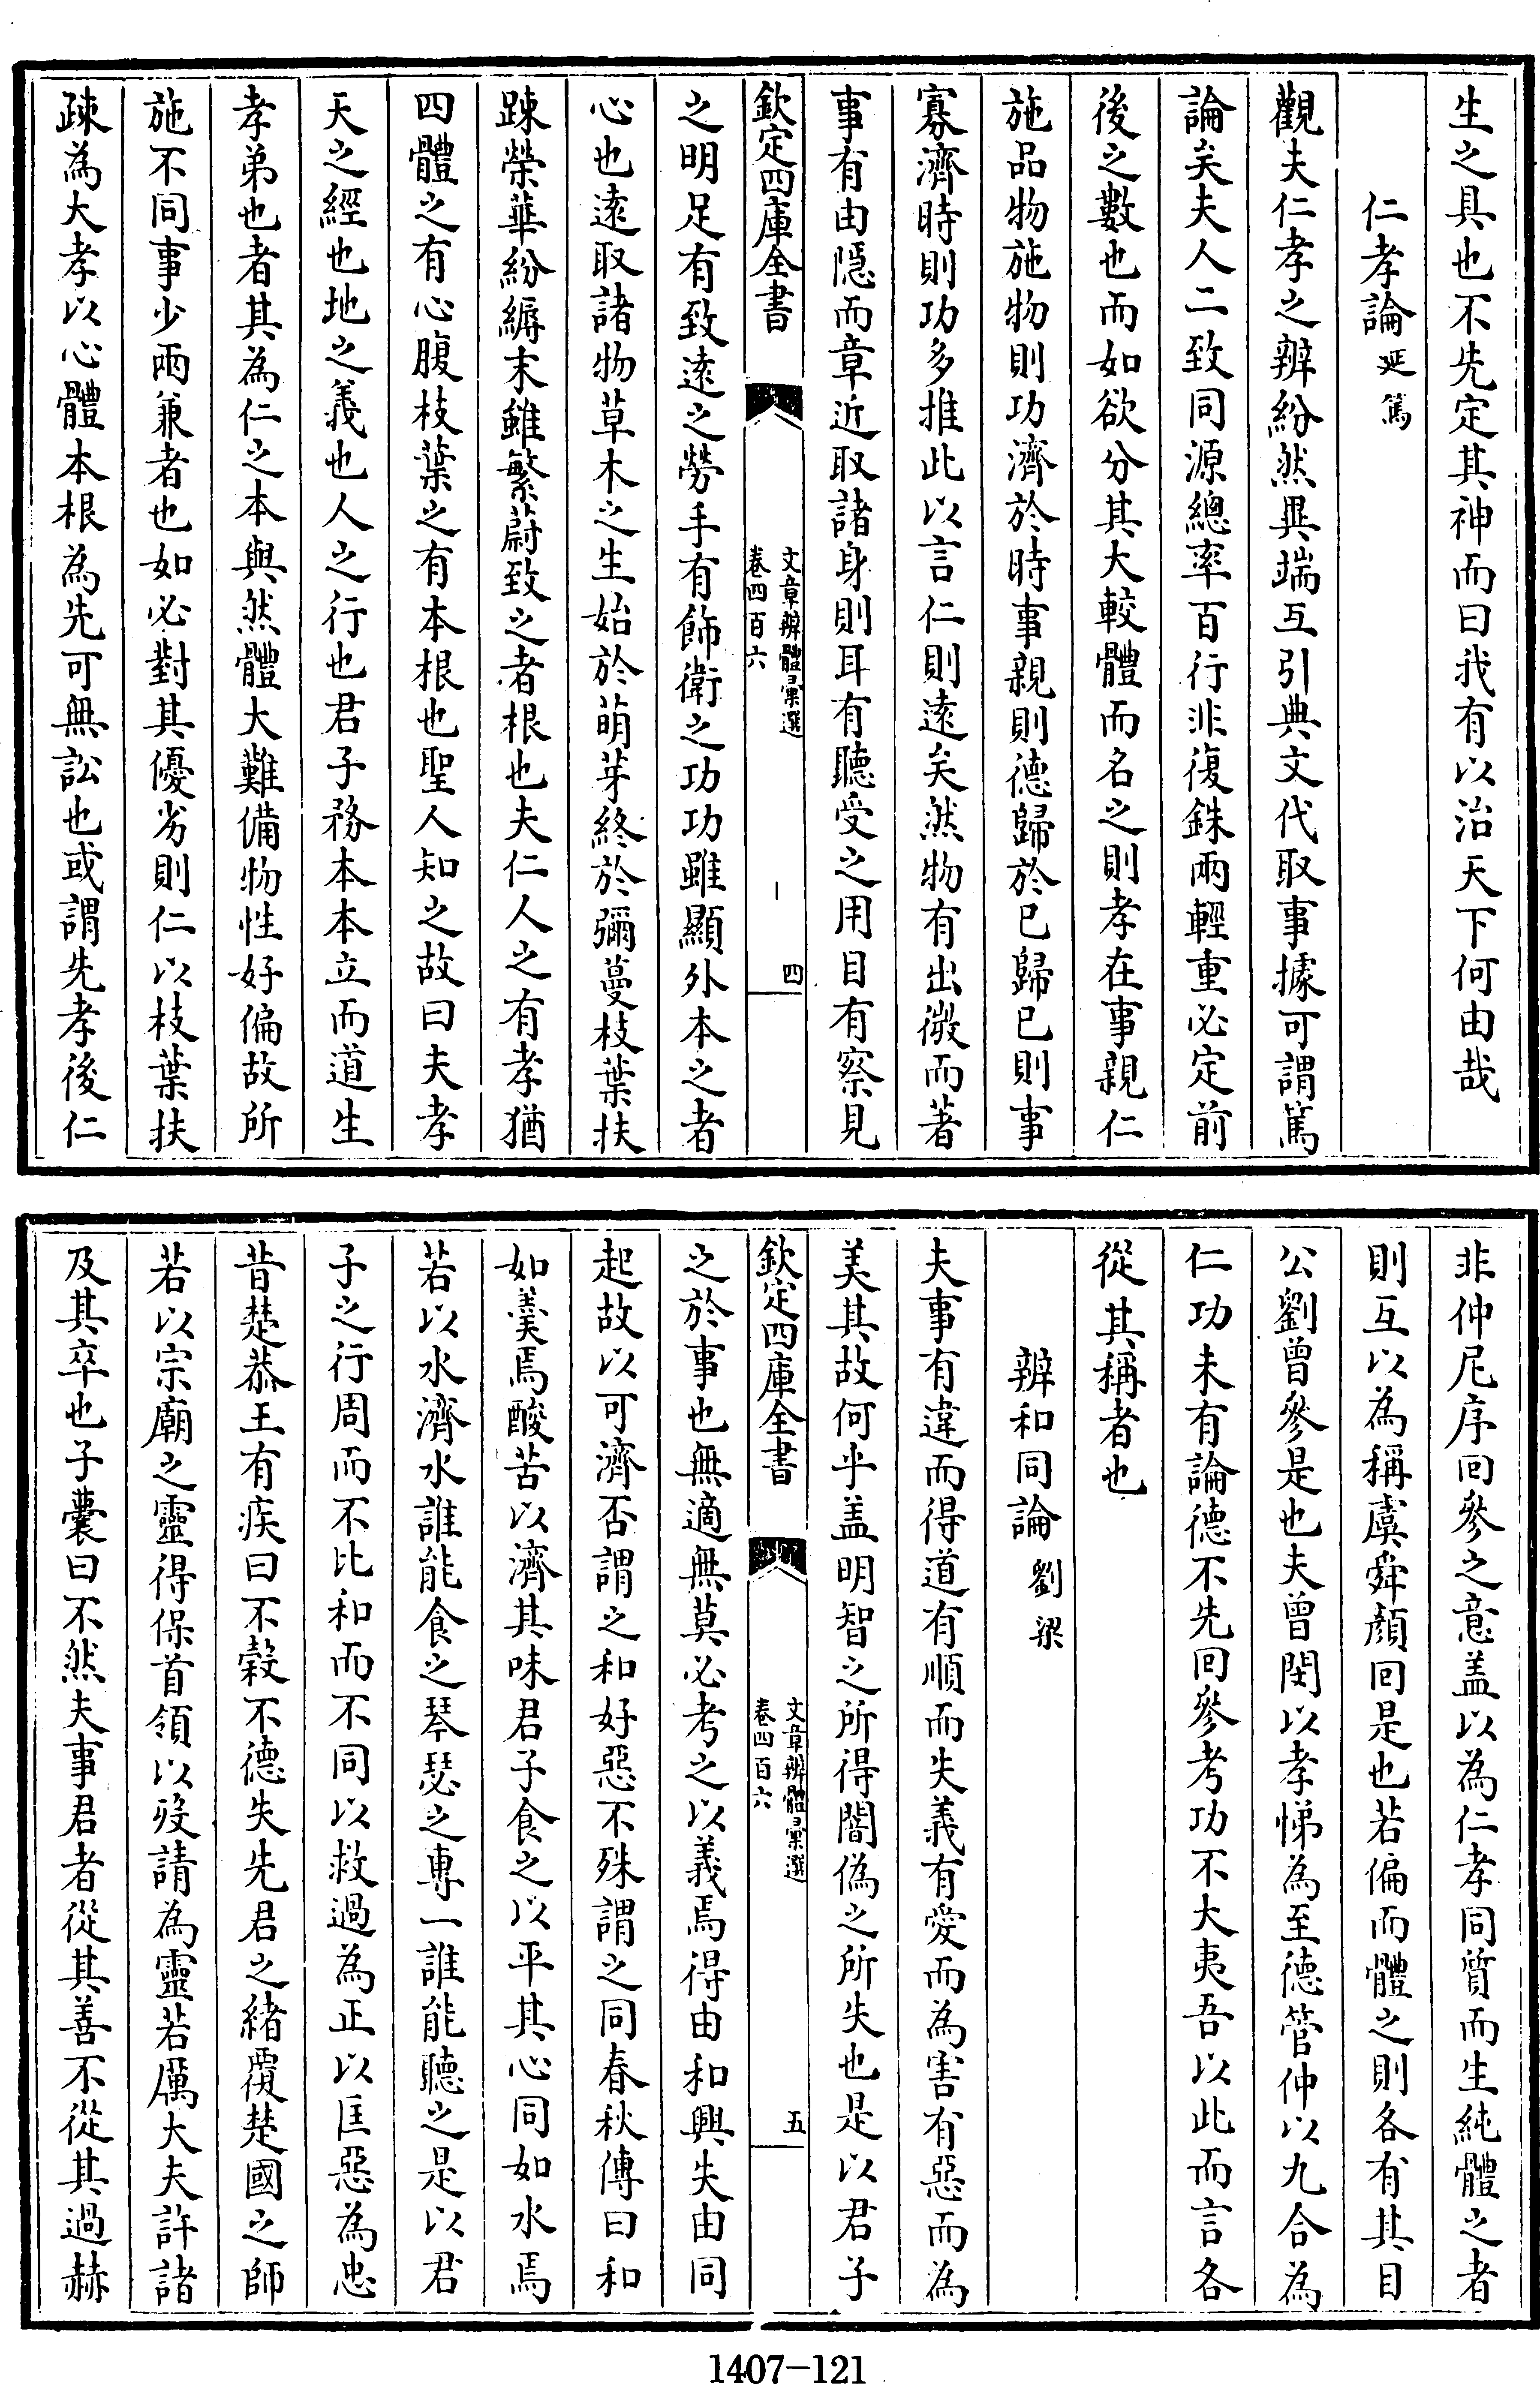 生之具也不先定其神而曰我有以治天下何由哉
仁孝論延篤
觀夫仁孝之辨紛然異端互引典文代取事據可謂篤
論矣夫人二致同源總率百行非復銖兩輕重必定前
後之數也而如欲分其大較體而名之則孝在事親仁
施品物施物則功濟於時事親則德歸於已歸已則事
寡濟時則功多推此以言仁則遠矣然物有出微而著
事有由隱而章近取諸身則耳有聽受之用目有察見
欽定四庫全書
文章辨體彙選
卷四百六
四
之明足有致遠之勞手有飾衛之功功雖顯外本之者
心也遠取諸物草木之生始於萌芽終於彌蔓枝葉扶
疎榮華紛縟末雖繁蔚致之者根也夫仁人之有孝猶
四體之有心腹枝葉之有本根也聖人知之故曰夫孝
天之經也地之義也人之行也君子務本本立而道生
孝弟也者其為仁之本與然體大難備物性好偏故所
施不同事少兩兼者也如必對其優劣則仁以枝葉扶
疎為大孝以心體本根為先可無訟也或謂先孝後仁
非仲尼序回參之意盖以為仁孝同質而生純體之者
則互以為稱虞舜顏回是也若偏而體之則各有其目
公劉曾參是也夫曾閔以孝悌為至德管仲以九合為
仁功未有論德不先回參考功不大夷吾以此而言各
從其稱者也
辨和同論劉梁
夫事有違而得道有順而失義有愛而為害有惡而為
美其故何乎盖明智之所得闇偽之所失也是以君子
欽定四庫全書
文章辨體彙選
卷四百六
五
之於事也無適無莫必考之以義焉得由和興失由同
起故以可濟否謂之和好惡不殊謂之同春秋傳曰和
如羹焉酸苦以濟其味君子食之以平其心同如水焉
若以水濟水誰能食之琴瑟之專一誰能聽之是以君
子之行周而不比和而不同以救過為正以匡惡為忠
昔楚恭王有疾曰不穀不德失先君之緒覆楚國之師
若以宗廟之靈得保首領以歿請為靈若厲大夫許諸
及其卒也子囊曰不然夫事君者從其善不從其過赫
1407-121